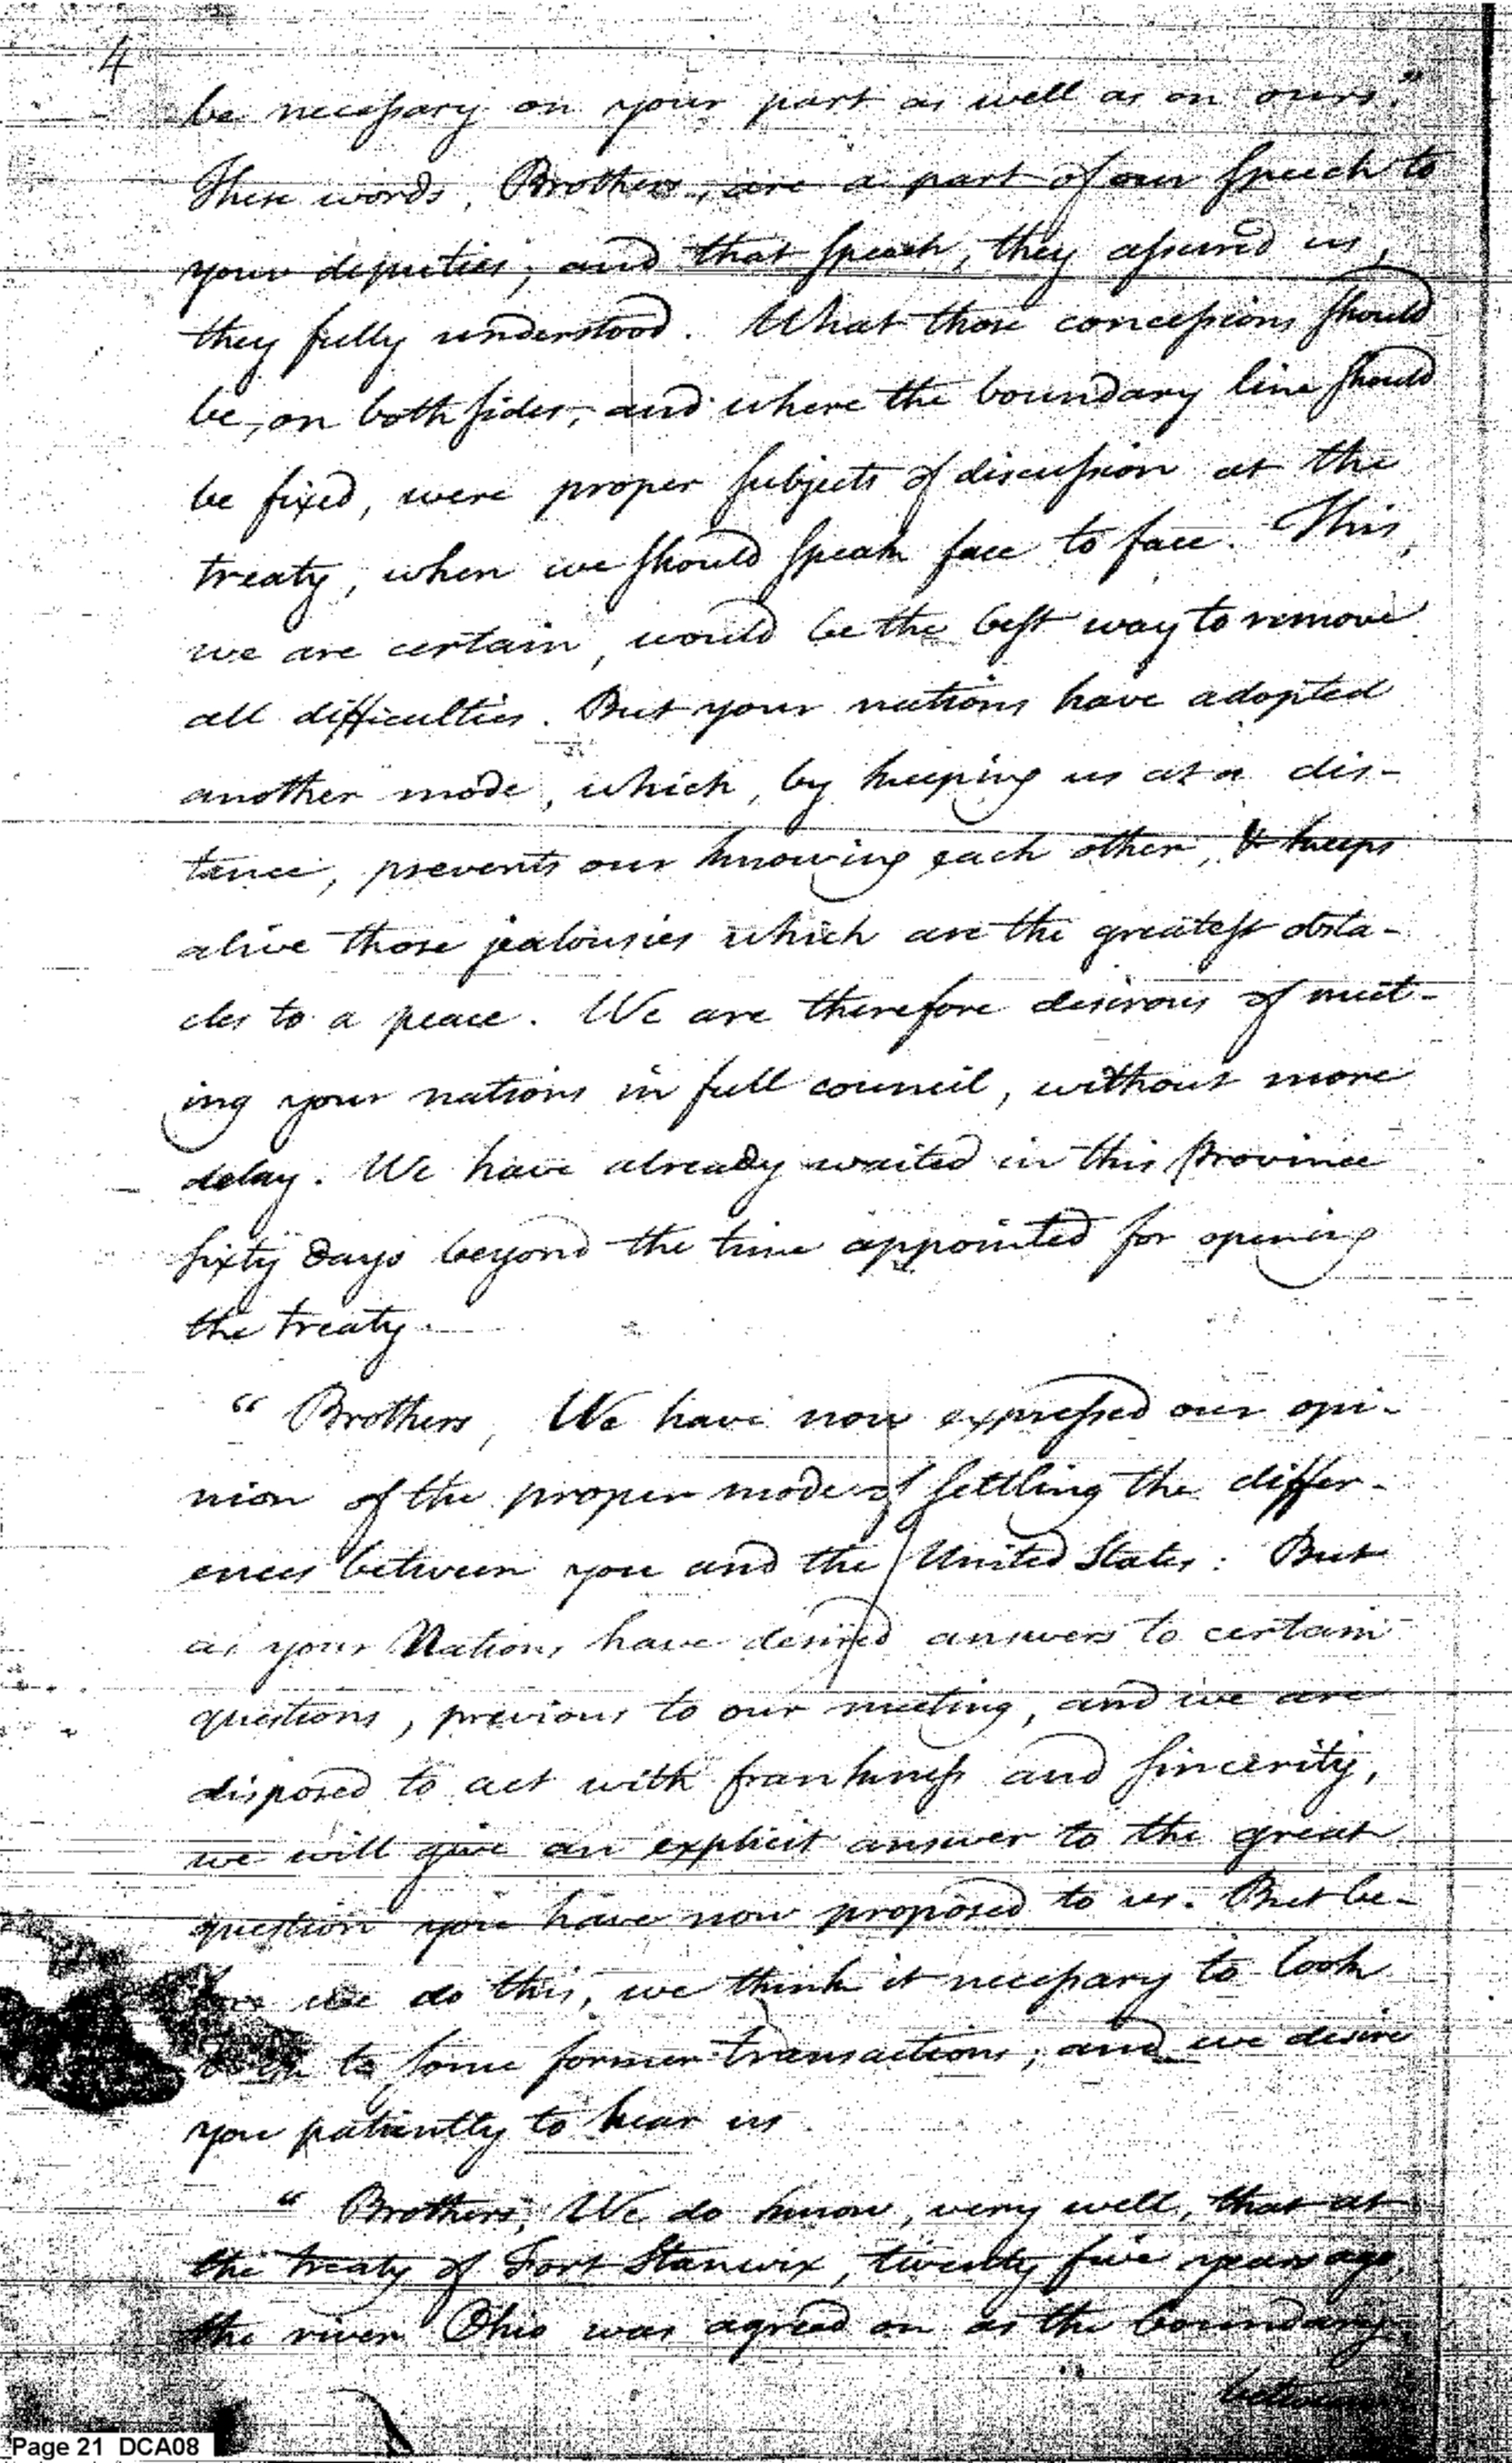 4
be necessary on your part as well as on ours."
These words, Brothers, are a part of our speech to
your deputies; and that speech, they assured us,
they fully understood. What those concessions should
be, on both sides, and where the boundary line should
be fixed, were proper subjects of discussion at the
treaty, when we should speak face to face. This,
we are certain, would be the best way to remove
all difficulties. But your nations have adopted
another mode, which, by keeping us at a dis-
tance, prevents our knowing each other, & keeps
alive those jealousies which are the greatest obsta-
cles to a peace. We are therefore desirous of meet-
ing your nations in full council, without more
delay. We have already waited in this Province
sixty days beyond the time appointed for opening
the treaty.
" Brothers, We have now expressed our opi-
nion of the proper mode of settling the differ-
ences between you and the United States: But
as your Nations have desired answers to certain
questions, previous to our meeting, and we are
disposed to act with frankness and sincerity,
we will give an explicit answer to the great
question you have now proposed to us. But be-
fore we do this, we think it necessary to look
back to some former transactions; and we desire
you patiently to hear us.
" Brothers, We do know, very well, that at
the treaty of Fort Stanwix, twenty five years ago,
the river Ohio was agreed on as the boundary
between
Page 21 DCA08